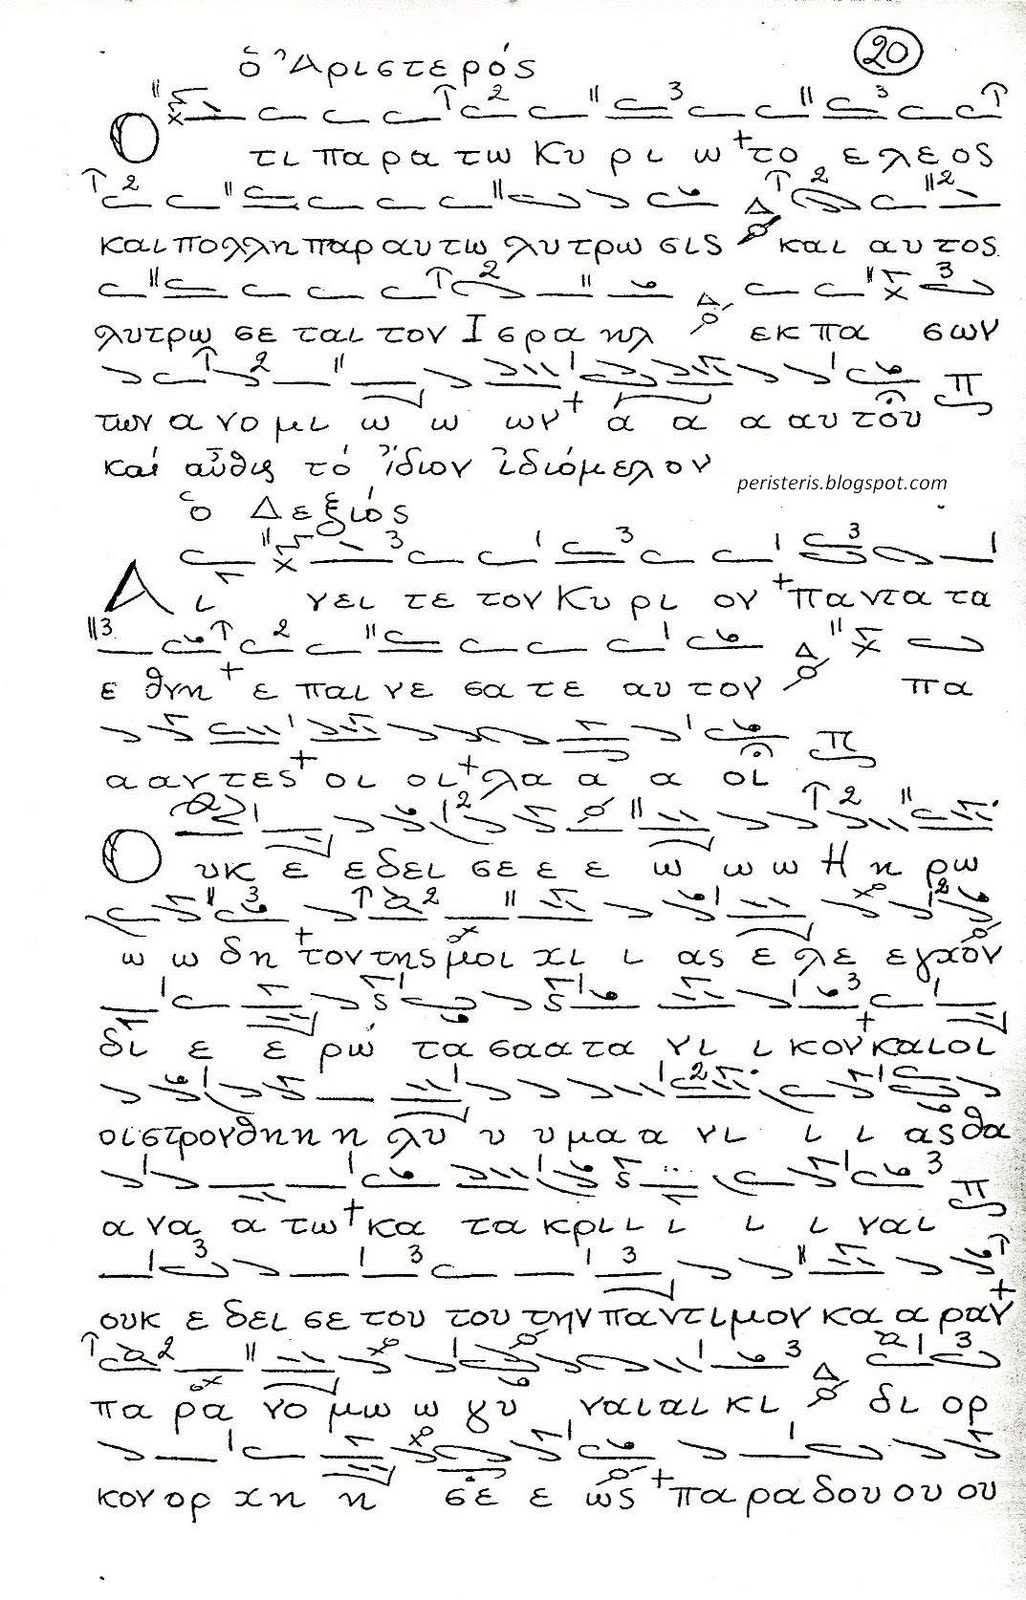 20
ὁ Ἀριστερός
Ο τι παρα τω Κυ ρι ω το ε λε ος
και πολλη παρ αυτω λυτρω σις και αυτος
λυτρω σε ται τον Ισρα ηλ εκ πα σων
των α νο μι ω ω ων ά α α αυ του
και αὖθις τό ἴδιον ἰδιόμελον
peristeris.blogspot.com
ὁ Δεξιός
Α ι νει τε τον Κυ ρι ον παντα τα
ε θνη ε παι νε σα τε αυ τον πα
α αντες οι οι λα α α οι
Ο υκ ε εδει σε ε ε ω ω ω Η η ρω
ω ω δη τον της μοι χι ι ας ε λε εγχον
δι ε ε ρώ τα σα α τα νι ι κον και οι
οι στρον θη η η λυ υ υ μα α νι ι ι ας θα
α να α τω κα τα κρι ι ι ι ι ι ναι
ουκ ε δει σε του του την παντιμον κα α ραν
πα ρα νο μω ω γυ ναι αι κι δι ορ
κον ορ χη η σε ε ως παραδου ου ου